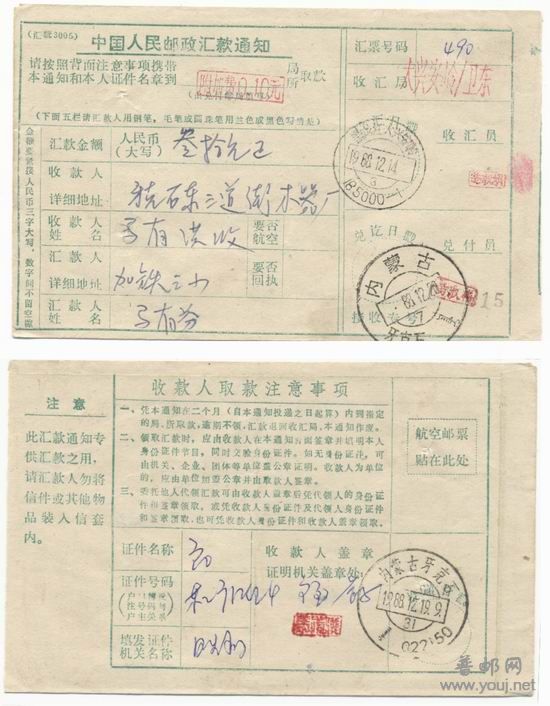 (汇款3005)
中国人民邮政汇款通知
请按照背面注意事项携带
本通知和本人证件名章到
局
所
取款
附加费0.10元
汇票号码
490
收汇局
(下面五栏请汇款人用钢笔，毛笔或圆珠笔用兰色或黑色写清楚)
金额要紧接人民币三字大写，数字间不留空隙
汇款金额
人民币
(大写)
叁拾元正
收款人
详细地址
收款人
姓名
要否
航空
汇款人
详细地址
加铁三小
要否
回执
汇款人
姓名
收汇日戳
收汇员
1988.12.14
兑讫日戳
兑付员
内蒙古
牙克石
接收卷号
15
收款人取款注意事项
注意
此汇款通知专
供汇款之用，
请汇款人勿将
信件或其他物
品装入信套
内。
一、凭本通知在二个月(自本通知投递之日起算)内到指定
的局、所取款，逾期不领，汇款退回收汇局，本通知作废。
二、领取汇款时，应由收款人在本通知背面签章并填明本人
身份证件节目，同时交验身份证件。如无身份证件，可
由机关、企业、团体等单位盖公章证明。收款人为单位
的，应由单位加盖公章并由取款人签章。
三、委托他人代领汇款可由收款人盖章后凭代领人的身份证
件和签章领取，或凭收款人身份证件及代领人身份证件
和签章领取，也可凭收款人身份证件和收款人盖章领取。
航空邮票
贴在此处
证件名称
证件号码
(户口簿填
注号码与
户主关系)
填发证件
机关名称
收款人盖章
证明机关盖章处：
内蒙古牙克石
1988.12.19.9
31
022150
普邮网
www.youj.net